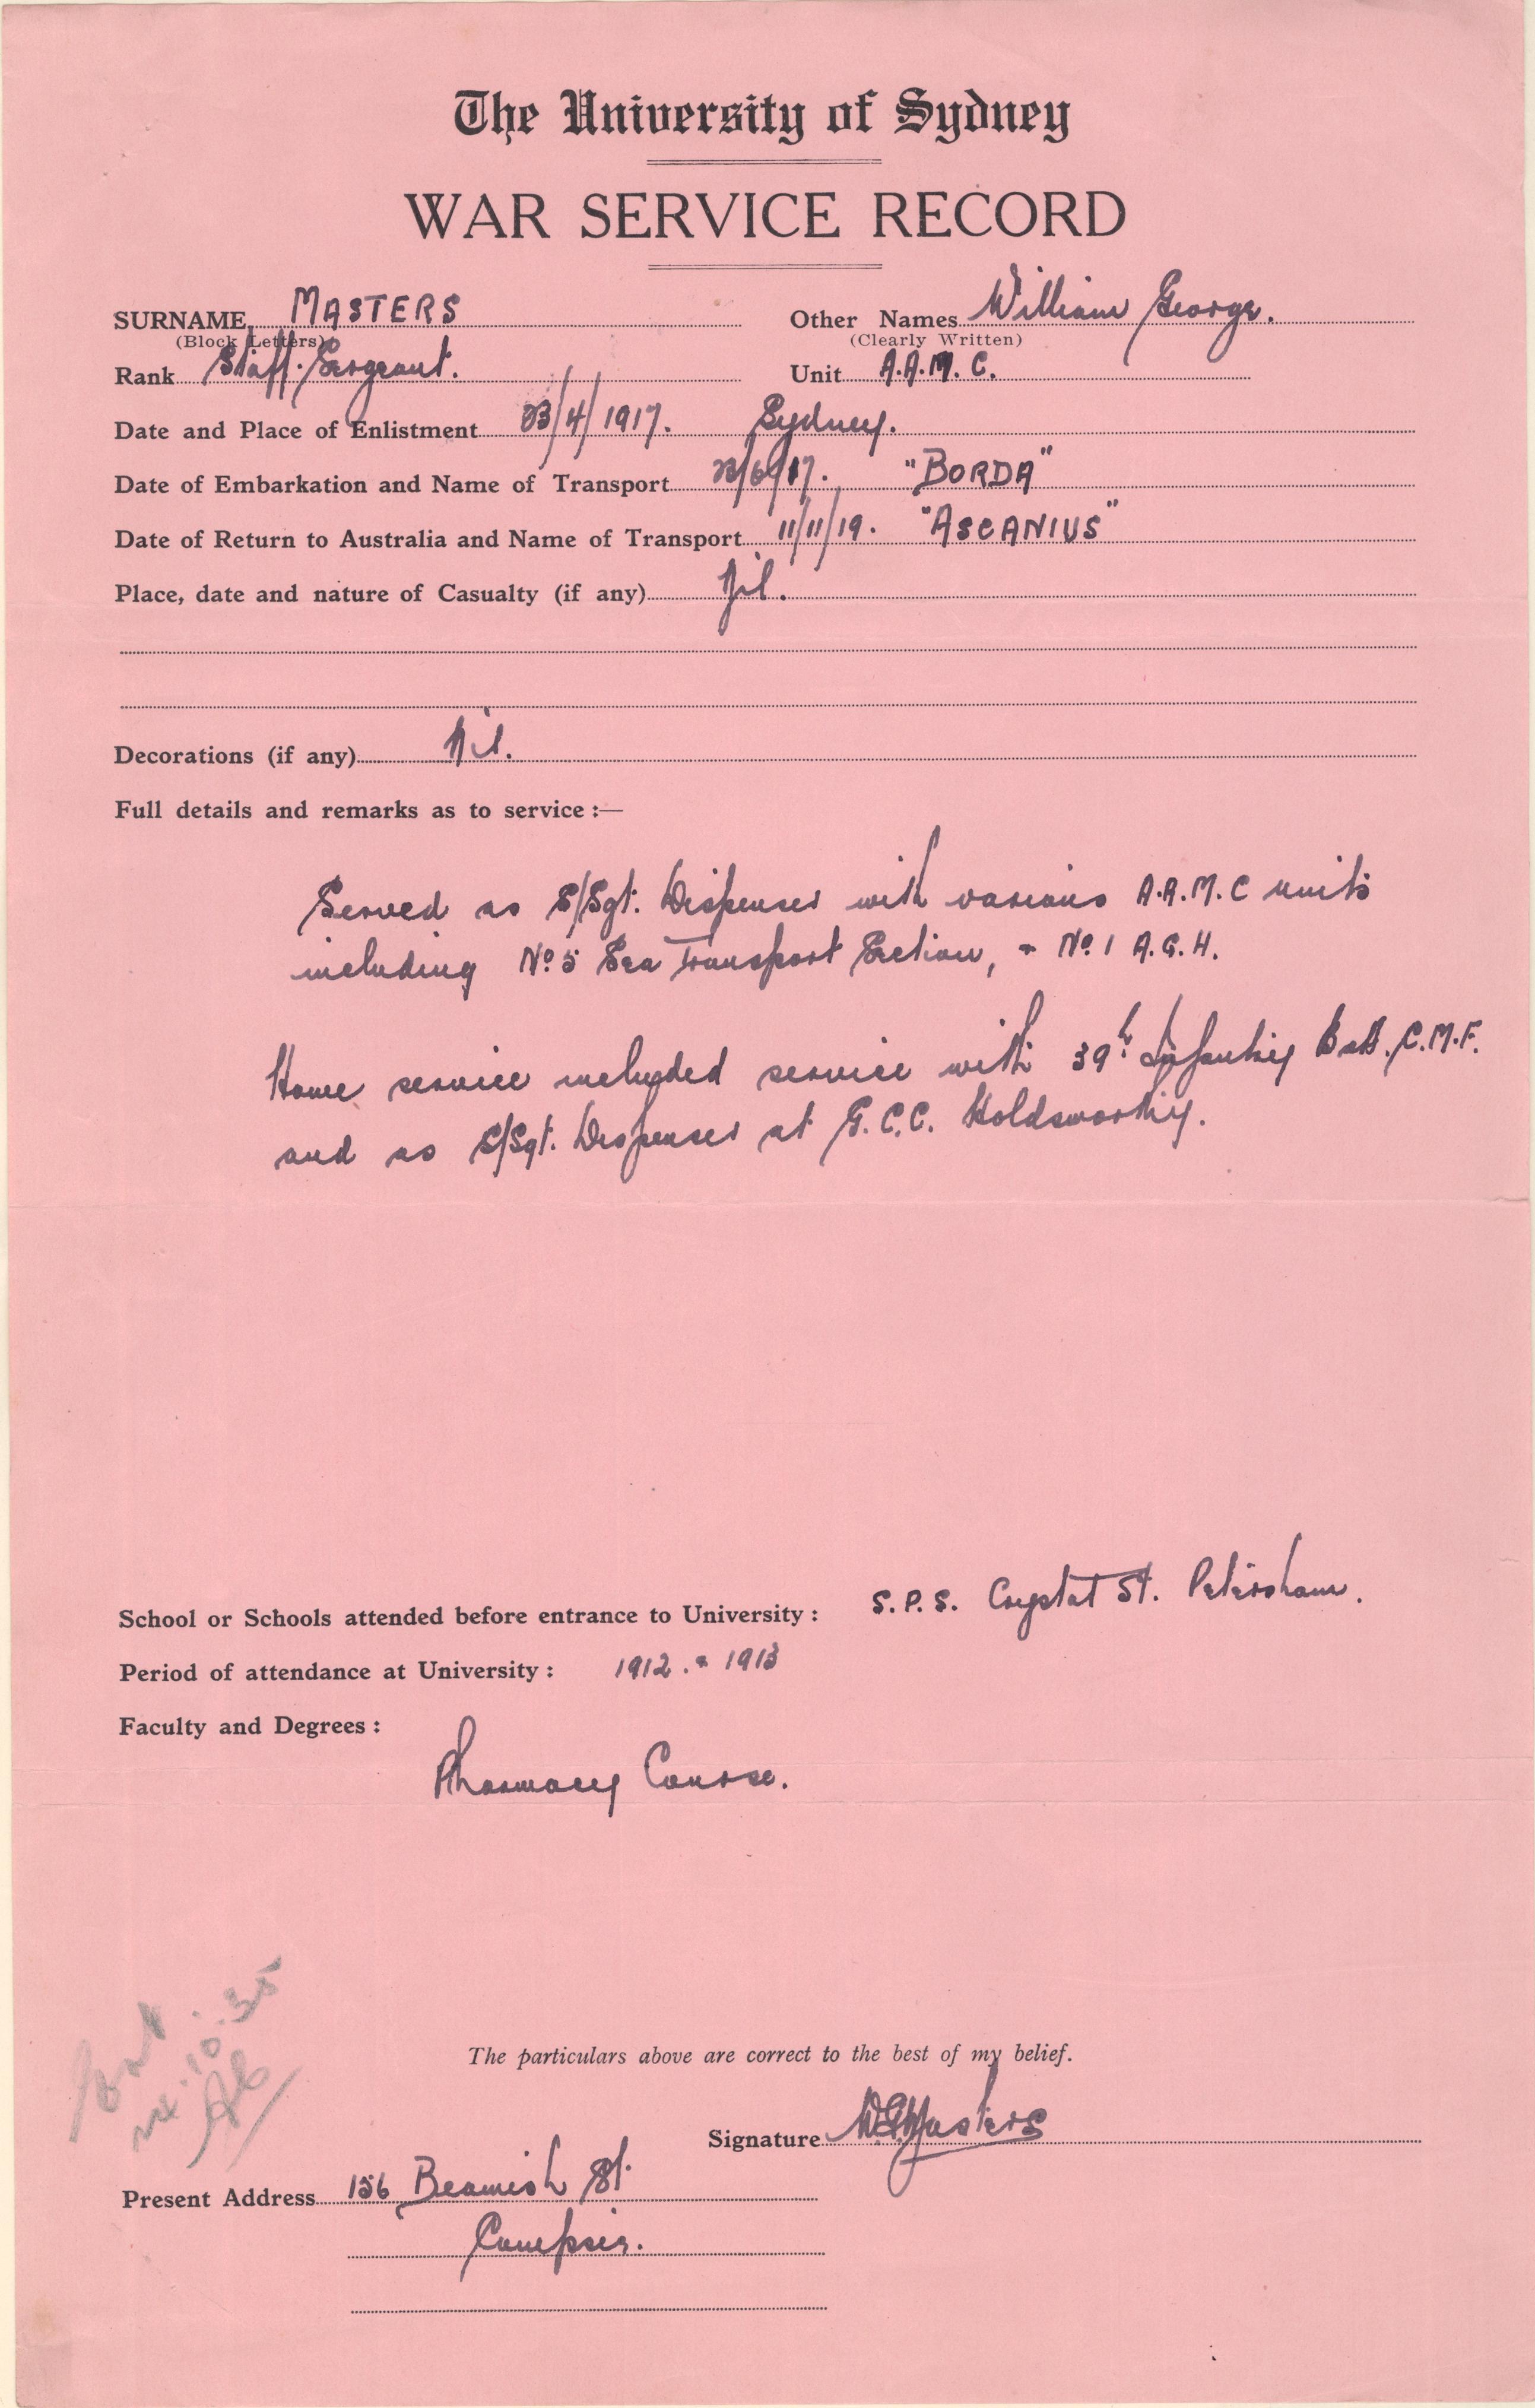 The University of Sydney
WAR SERVICE RECORD
SURNAME MASTERS Other Names William George.
(Block Letters) (Clearly Written)
Rank Staff. Sergeant. Unit A.A.M.C.
Date and Place of Enlistment 23/4/1917. Sydney.
Date of Embarkation and Name of Transport 23/6/17. "BORDA"
Date of Return to Australia and Name of Transport 11/11/19. "ASCANIUS"
Place, date and nature of Casualty (if any) Nil.
Decorations (if any) Nil.
Full details and remarks as to service :—
Served as S/Sgt. Dispenser with various A.A.M.C units
including No 5 Sea Transport Section, & No 1 A.G.H.
Home service included service with 39th Infantry Batt. C.M.F.
and as S/Sgt. Dispenser at G.C.C. Holdsworthy.
School or Schools attended before entrance to University : S.P.S. Crystal St. Petersham.
Period of attendance at University : 1912. & 1913
Faculty and Degrees :
Pharmacy Course.
10.35
The particulars above are correct to the best of my belief.
Signature W.G. Masters
Present Address 156 Beamish St.
Campsie.